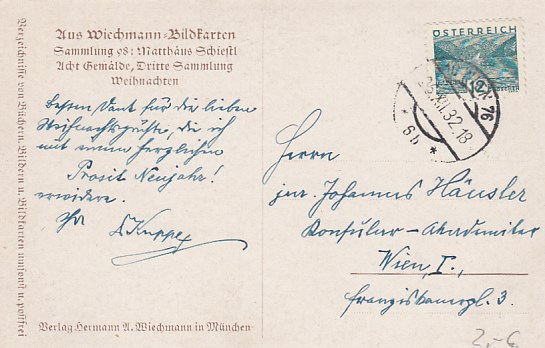 Aus Wiechmann-Bildkarten
Sammlung 98: Matthäus Schiestl
Acht Gemälde, Dritte Sammlung
Weihnachten
Besten Dank für die lieben
Weihnachtsgrüße, die ich
mit einem herzlichen
Prosit Neujahr!
erwidere.
Ihr
Verlag Hermann A. Wiechmann in München
Verzeichnisse von Büchern, Bildern u. Bildkarten umsonst u. postfrei
ÖSTERREICH
12
WIEN 76
XII.32.18
6b
*
Herrn
jur. Johannes Häusler
Konsular-Akademiker
Wien, I.,
Franziskanerpl. 3.
2,- €